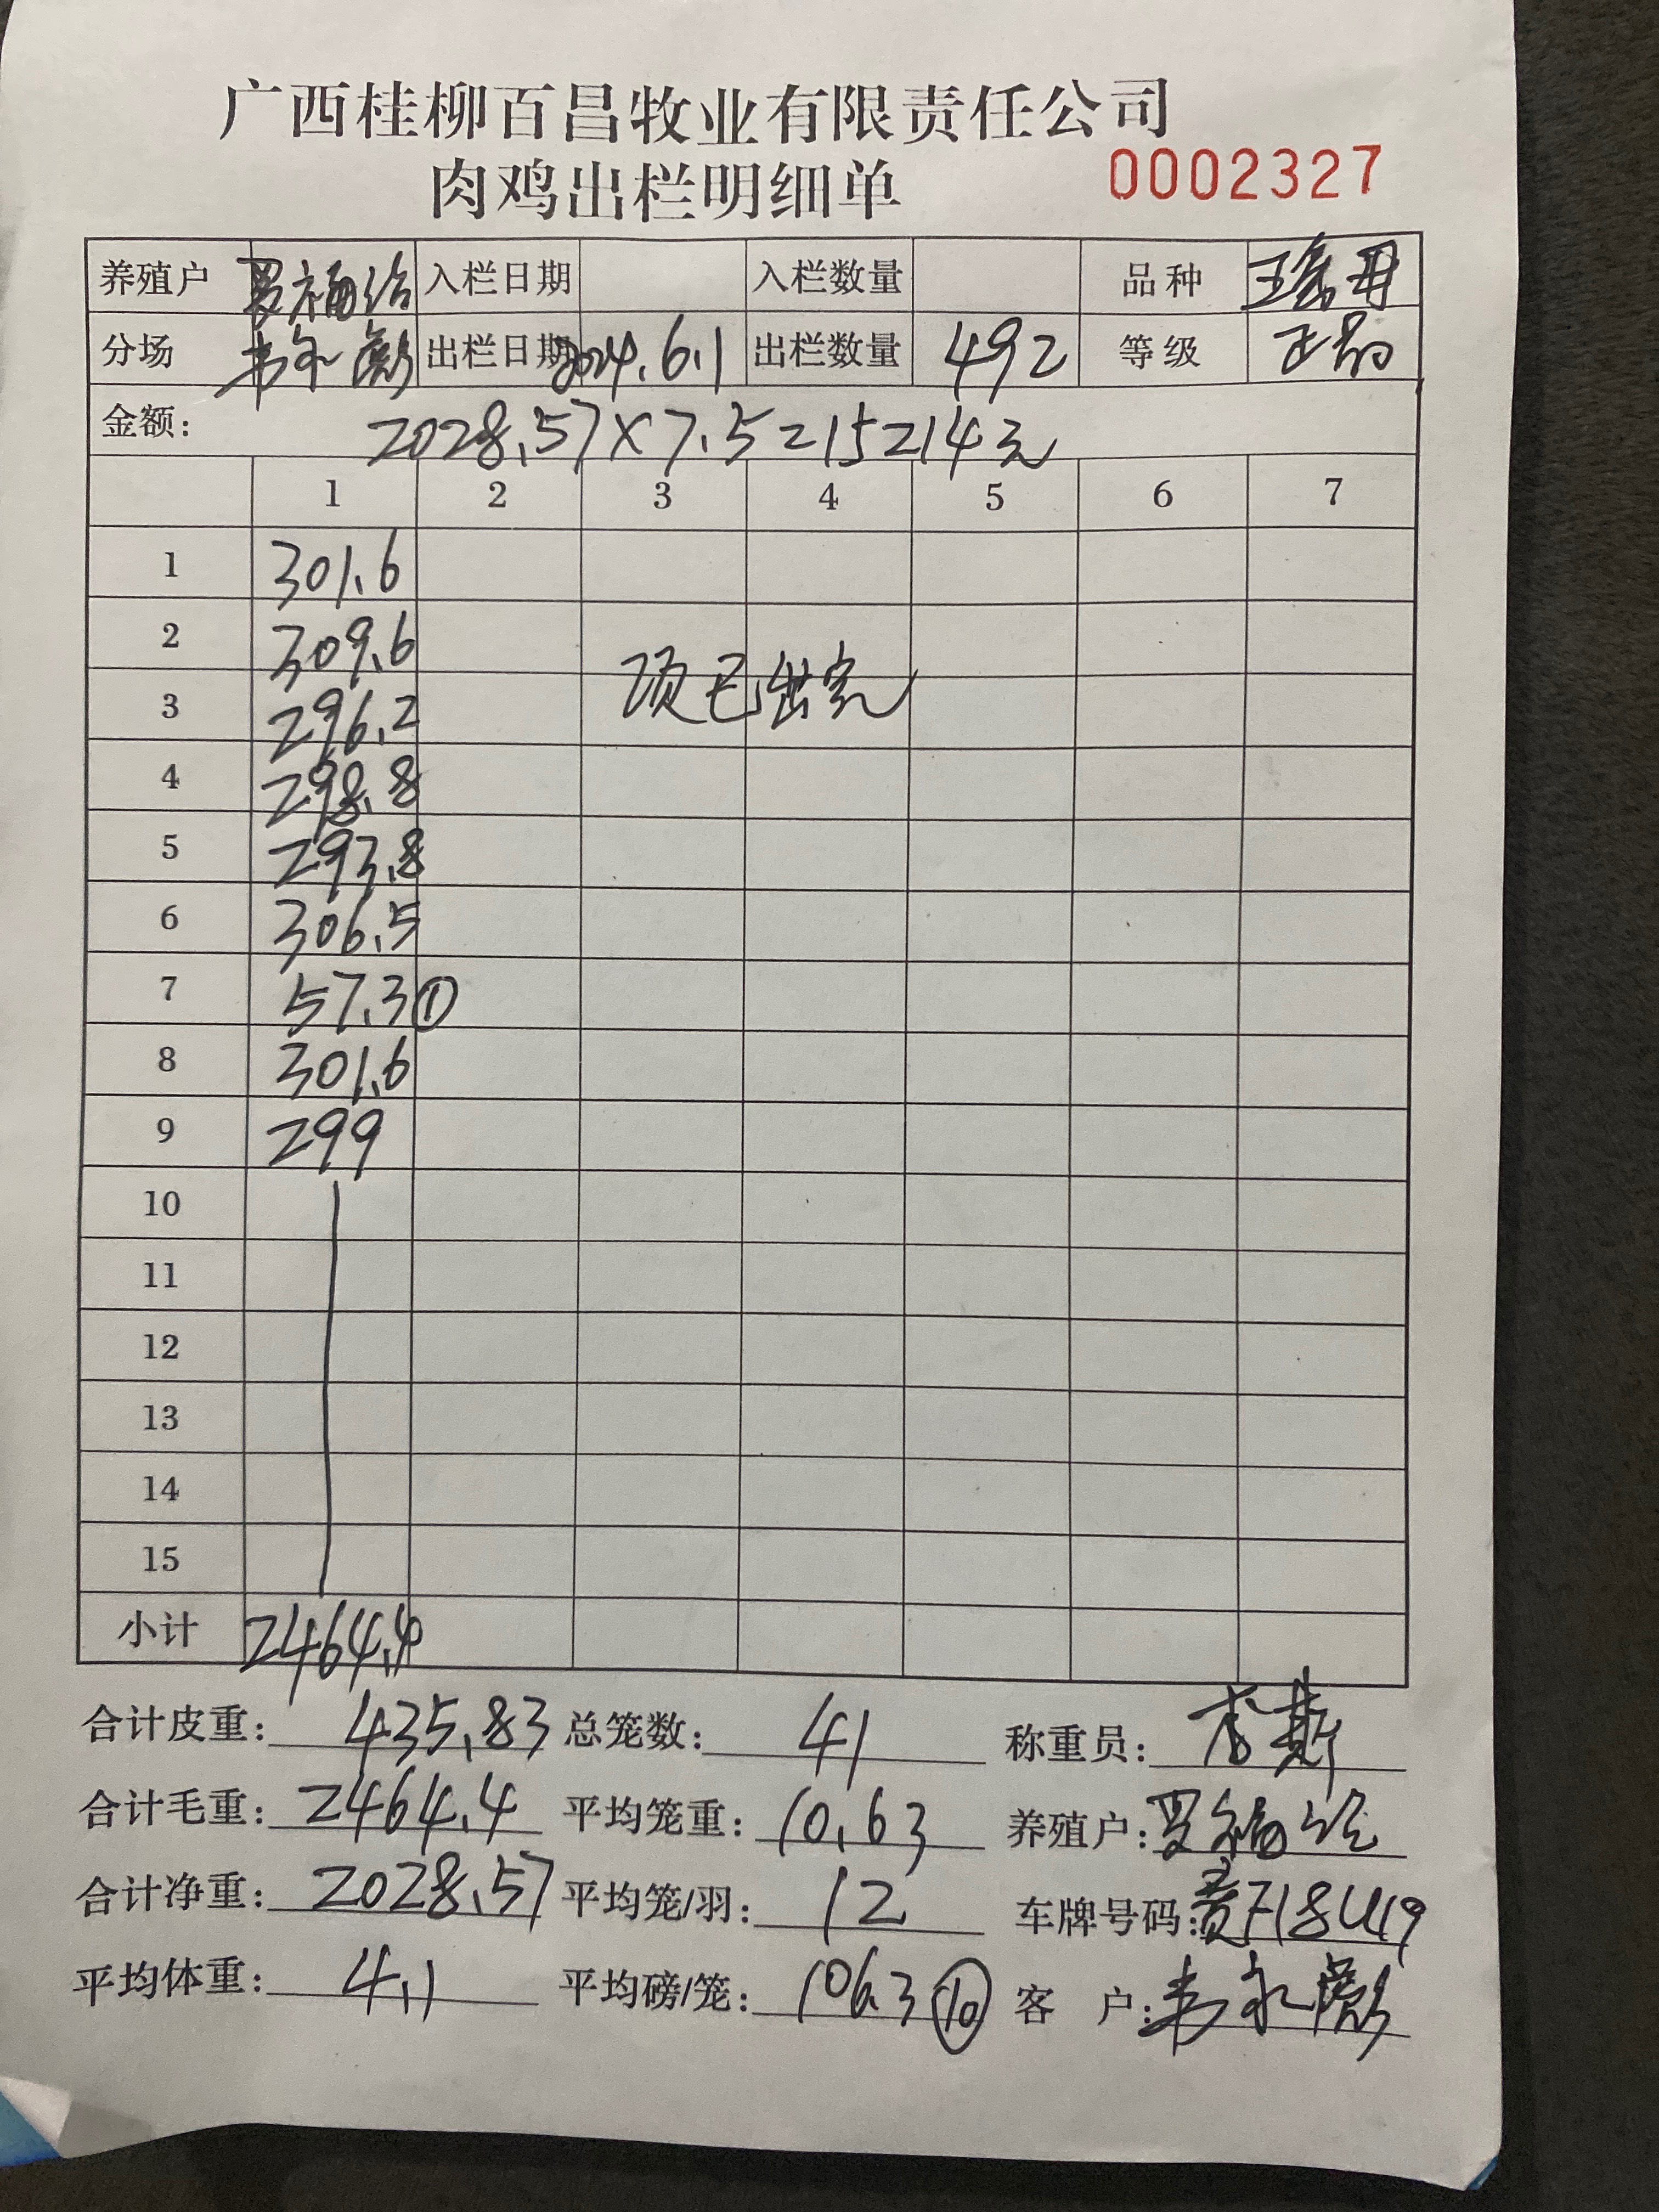 广西桂柳百昌牧业有限责任公司
肉鸡出栏明细单 0002327
养殖户 罗福给 入栏日期 入栏数量 品种
分场 韦永 出栏日期 2024.6.1 出栏数量 492 等级 正品
金额: 2028.57×7.5=15214元
1 2 3 4 5 6 7
1 301.6
2 309.6
3 296.2 项已出完
4 298.8
5 293.8
6 306.5
7 57.3①
8 301.6
9 299
10
11
12
13
14
15
小计 2464.4
合计皮重: 435.83 总笼数: 41 称重员:
合计毛重: 2464.4 平均笼重: 10.63 养殖户: 罗福
合计净重: 2028.57 平均笼/羽: 12 车牌号码:
平均体重: 4.1 平均磅/笼: 106.3⑩ 客 户: 韦永